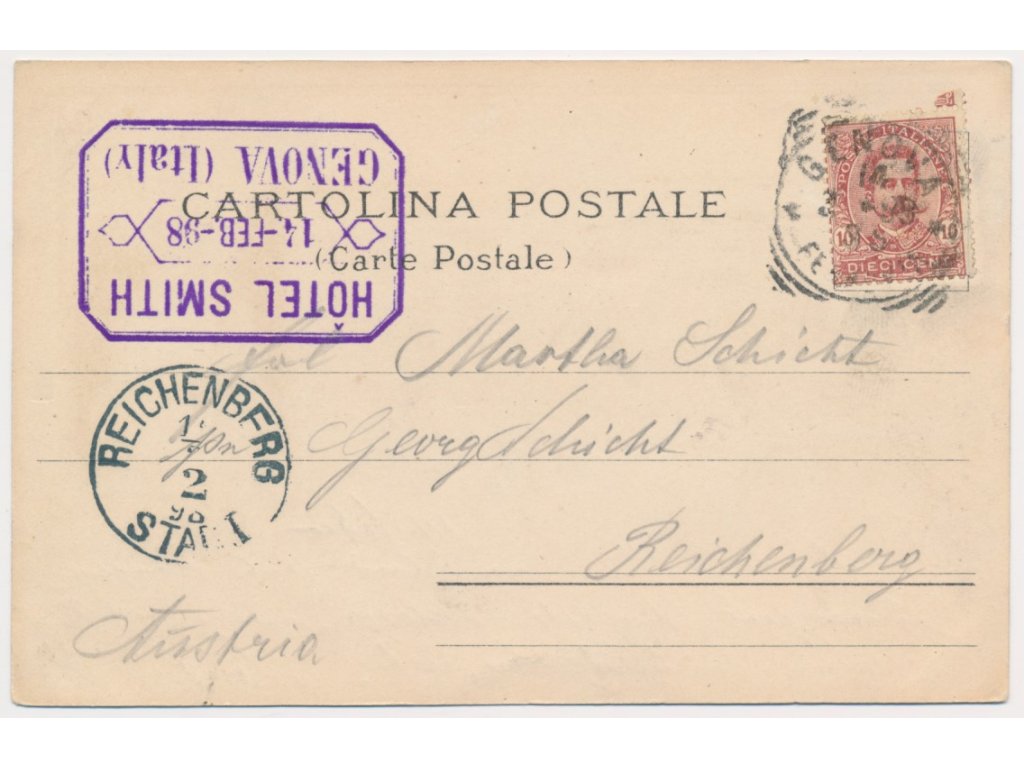 HÔTEL SMITH
14-FEB-98
GENOVA (Italy)
CARTOLINA POSTALE
(Carte Postale)
GENOVA
POSTE ITALIANE
10 10
DIECI CENT
Martha Schicht
Georg Schicht
REICHENBERG
2
98
STADT
Reichenberg
Austria